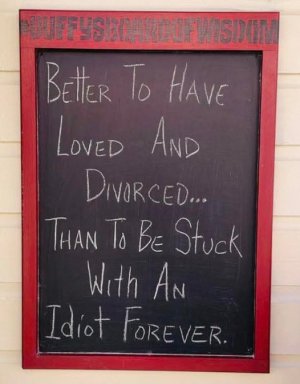 #DUFFYSBOARDOFWISDOM
BETTER TO HAVE
LOVED AND
DIVORCED...
THAN TO BE STUCK
WITH AN
IDIOT FOREVER.